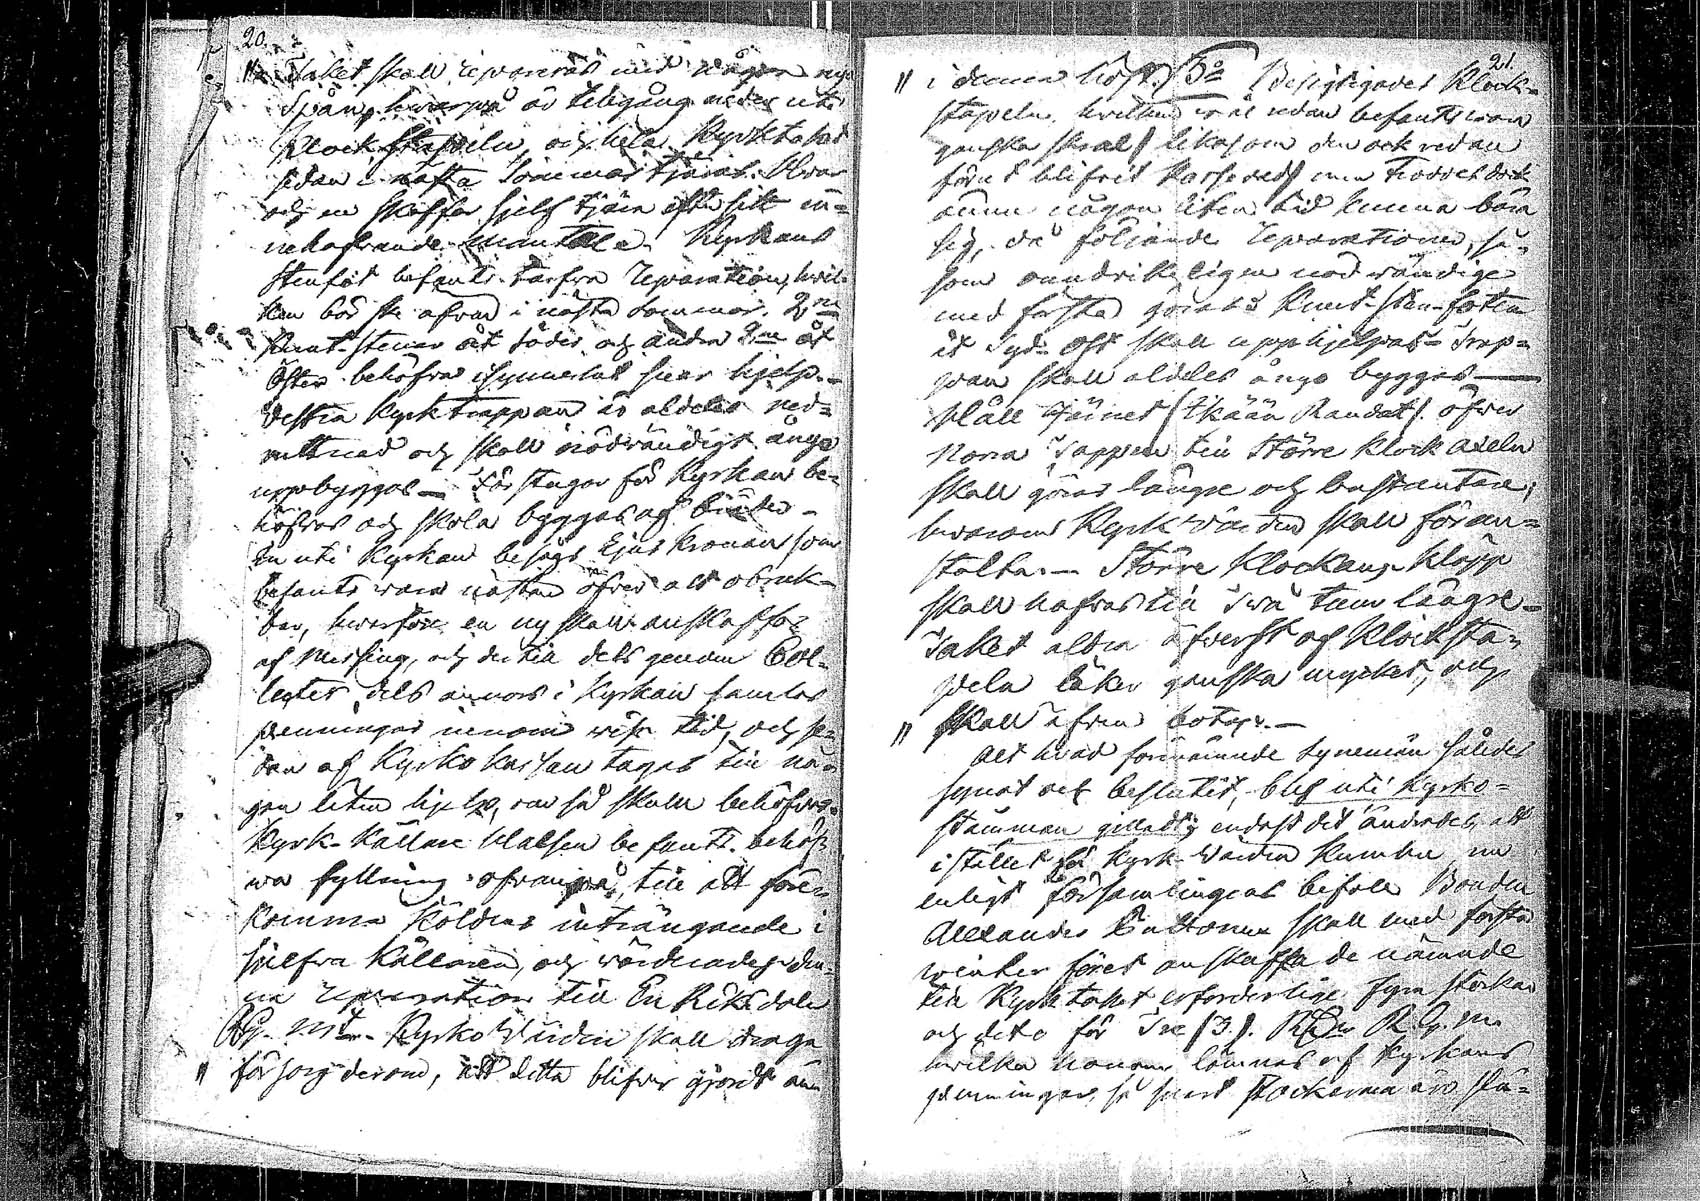 20.
Taket skall repareras med någre nya
Spån, hwarpå är tillgång nedan uti
Klockstapeln, och hela Kyrktaket
sedan i nästa Sommar tjäras. Hwar
och en skaffar sjelf tjära efter sitt in=
nehafwande mantal. Kyrkans
stenfot befants tarfwa reparation, hwil-
ken bör ske afwen i nästa Sommar. 2ne
Knut-stenar åt söder och andra 2ne åt
Öster behöfwa isynnerhet hjelp.
Westra Kyrktrappan är aldeles ned=
ruttnad och skall nödwändigt ånyo
uppbyggas — Förstugor för Kyrkan be=
höfwes och skola byggas af
In uti Kyrkan besågs Ljus Kronan som
befants wara nästan öfwer alt obruk-
bar, hwarföre en ny skall anskaffas
af Messing, och dertill dels genom Col=
lecter, dels annors i Kyrkan samlas
penningar innom wiss tid, och se=
dan af Kyrko kassan tagas till nå=
gon liten hjelp, om så skulle behöfwas.
Kyrk-Källare Halsen befants behöf
wa fyllning ofwanpå, till att före=
komma Köldens inträngande i
sjelfwa Källaren, och wärderades den=
na reparation till En Riksdaler
RG. mt. Kyrko Wärden skall draga
försorg derom, att detta blifwer gjordt än
21.
i denna höst. 3o Besigtigades Klock=
stapeln, hwilken wäl redan befants wara
ganska skral, likasom den ock redan
förut blifwit Kasserad, men troddes dock
ännu någon liten tid kunna bära
sig, då följande reparationer, så=
som oundwikeligen nödwändige
med första göras: Knut-Sten-foten
åt Syd-Ost skall upphjelpas — Trap=
pan skall aldeles ånyo byggas —
Håll Järnet (Ikään Raudat) öfwer
Norra Tappen till Större Klock axeln
skall göras längre och bastantare,
hwarom Kyrk Wärden skall föran=
stalta. — Större Klockans Kläpp
skall hafwas till Twå tum längre —
Taket aldra öfwerst af Klocksta=
peln läker ganska mycket, och
skall afwen botas. —
Alt hwad förenämnde synemän således
synat och beslutit, blef uti Kyrko=
stämman gilladt; endast det ändrades, att
i stället för Kyrk-Wärden nu
enligt församlingens befale Bonden
Alexander skall med första
winter föret anskaffa de nämnde
till Kyrktaket erforderlige fyra stockar
och det för Tre (3). RDr RG. m.
hwilka honom lämnas af Kyrkans
penningar, så snart stockarna äro